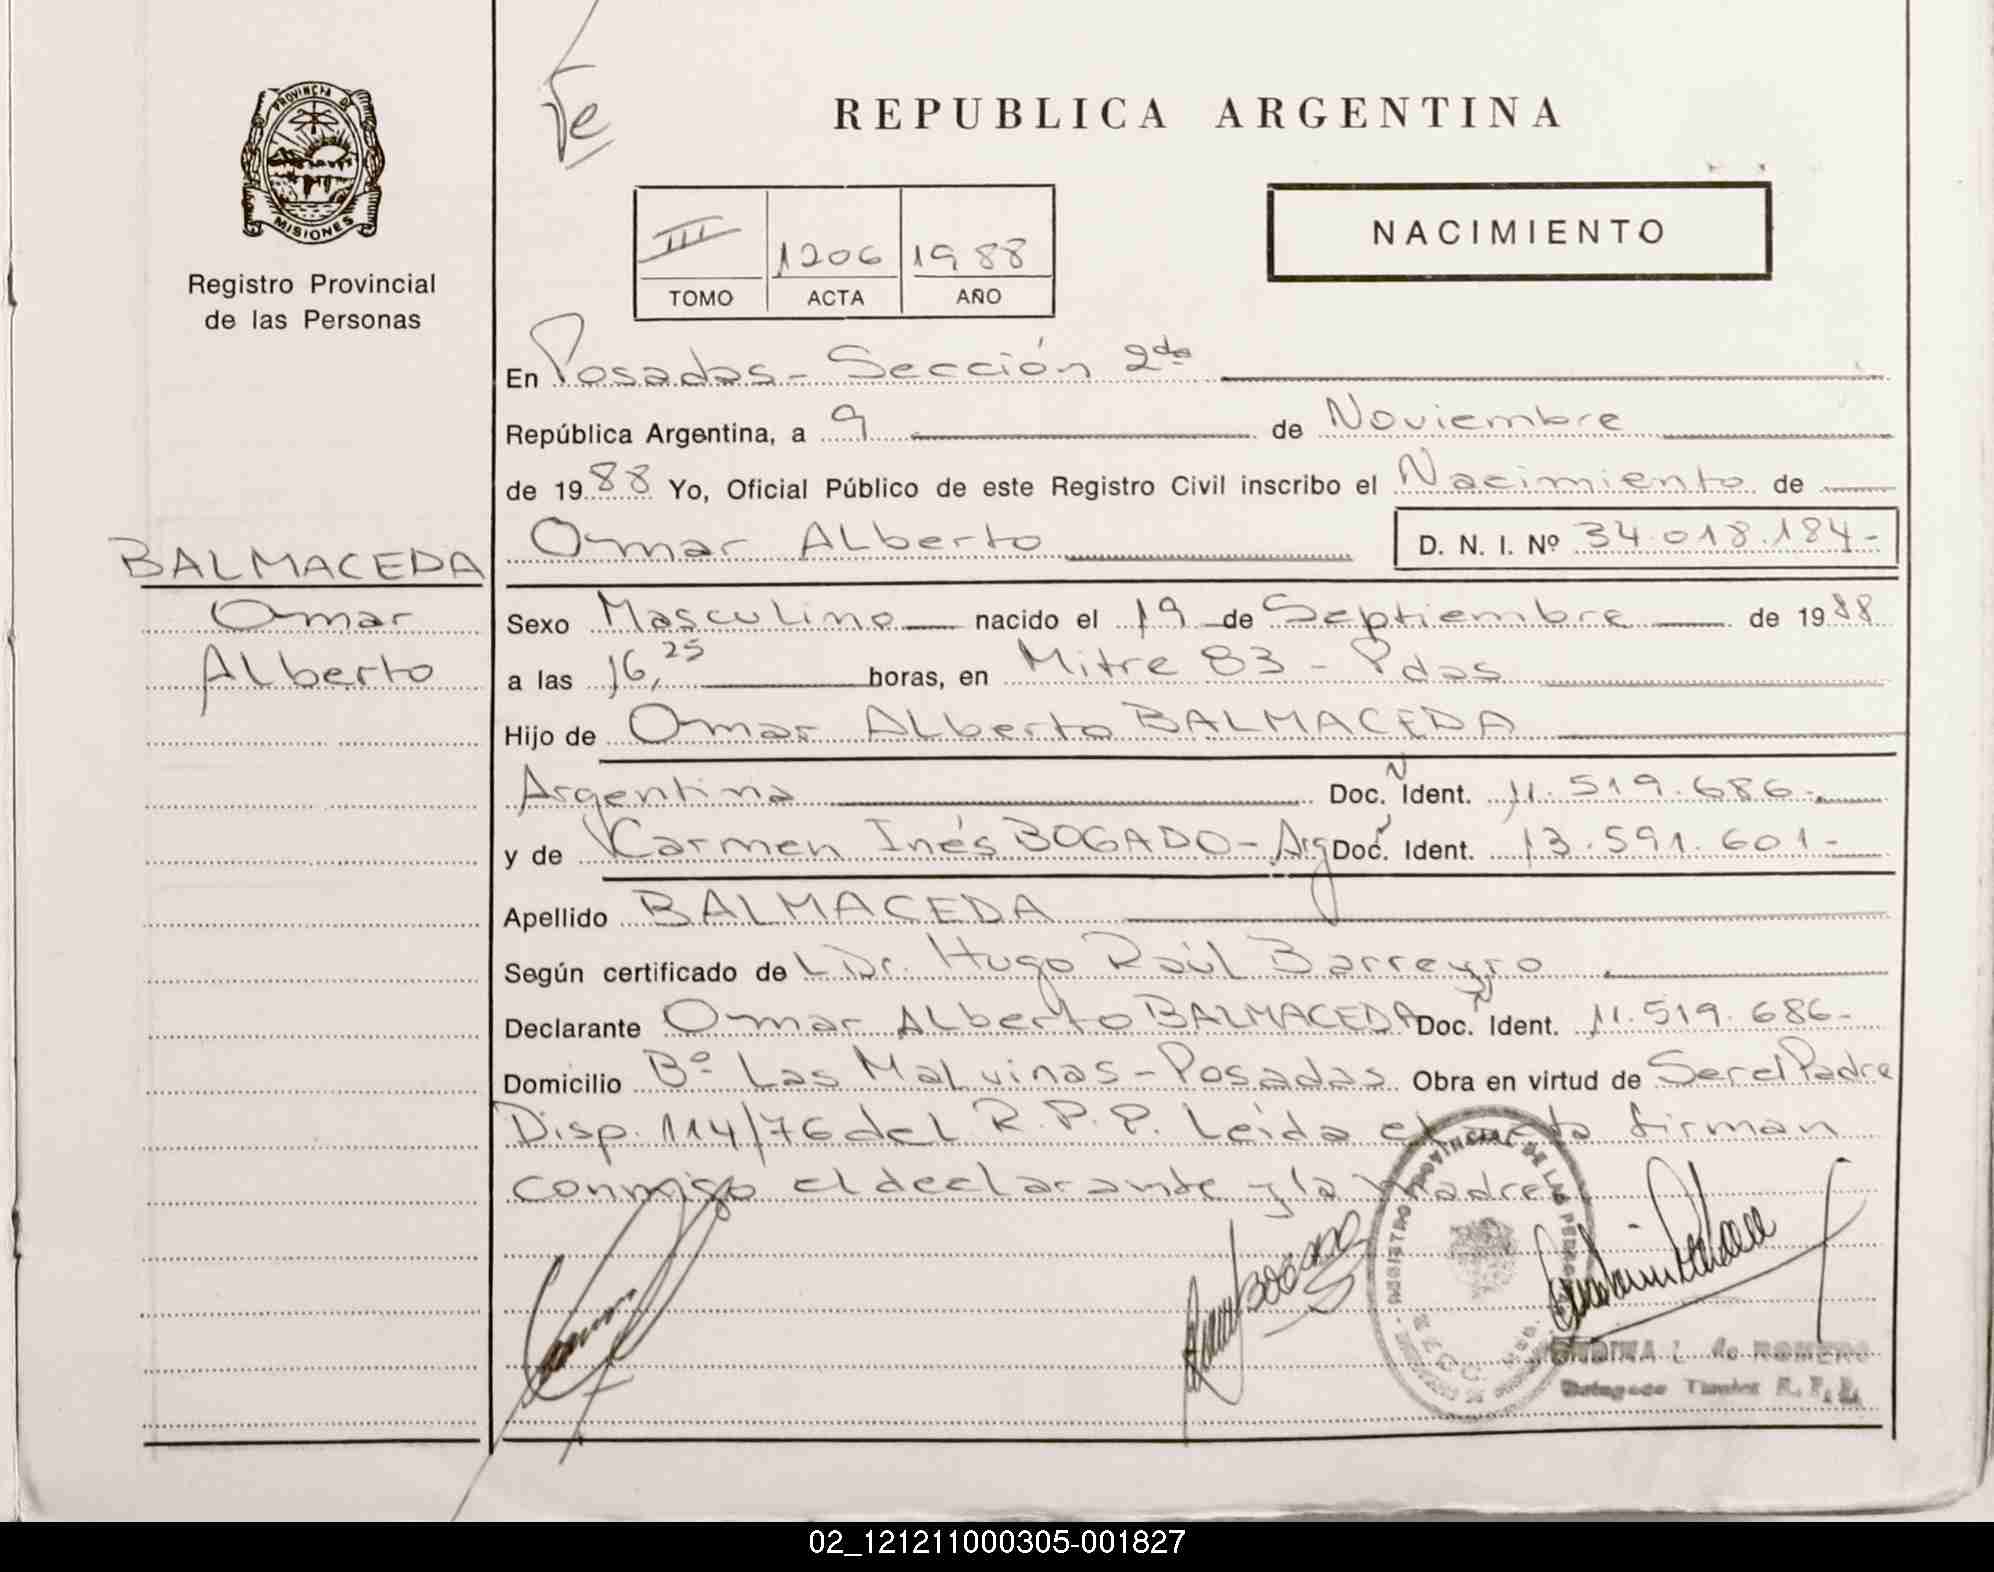 PROVINCIA DE
MISIONES
Registro Provincial
de las Personas
BALMACEDA
Omar
Alberto
REPUBLICA ARGENTINA
NACIMIENTO
III 1206 1988
TOMO ACTA AÑO
En Posadas - Sección 2da
República Argentina, a 9 de Noviembre
de 1988 Yo, Oficial Público de este Registro Civil inscribo el Nacimiento de
Omar Alberto D. N. I. Nº 34.018.184-
Sexo Masculino nacido el 19 de Septiembre de 1988
a las 16,25 horas, en Mitre 83 - Pdas
Hijo de Omar Alberto BALMACEDA
Argentina Doc. Ident. 11.519.686-
y de Carmen Inés BOGADO - Arg Doc. Ident. 13.591.601-
Apellido BALMACEDA
Según certificado de L Dr. Hugo Raúl Barreyro
Declarante Omar Alberto BALMACEDA Doc. Ident. 11.519.686-
Domicilio Bº Las Malvinas - Posadas Obra en virtud de Ser el Padre
Disp. 114/76 del R.P.P. Leída el acta firman
conmigo el declarante y la madre
L. de ROMERO
R. P. P.
02_121211000305-001827